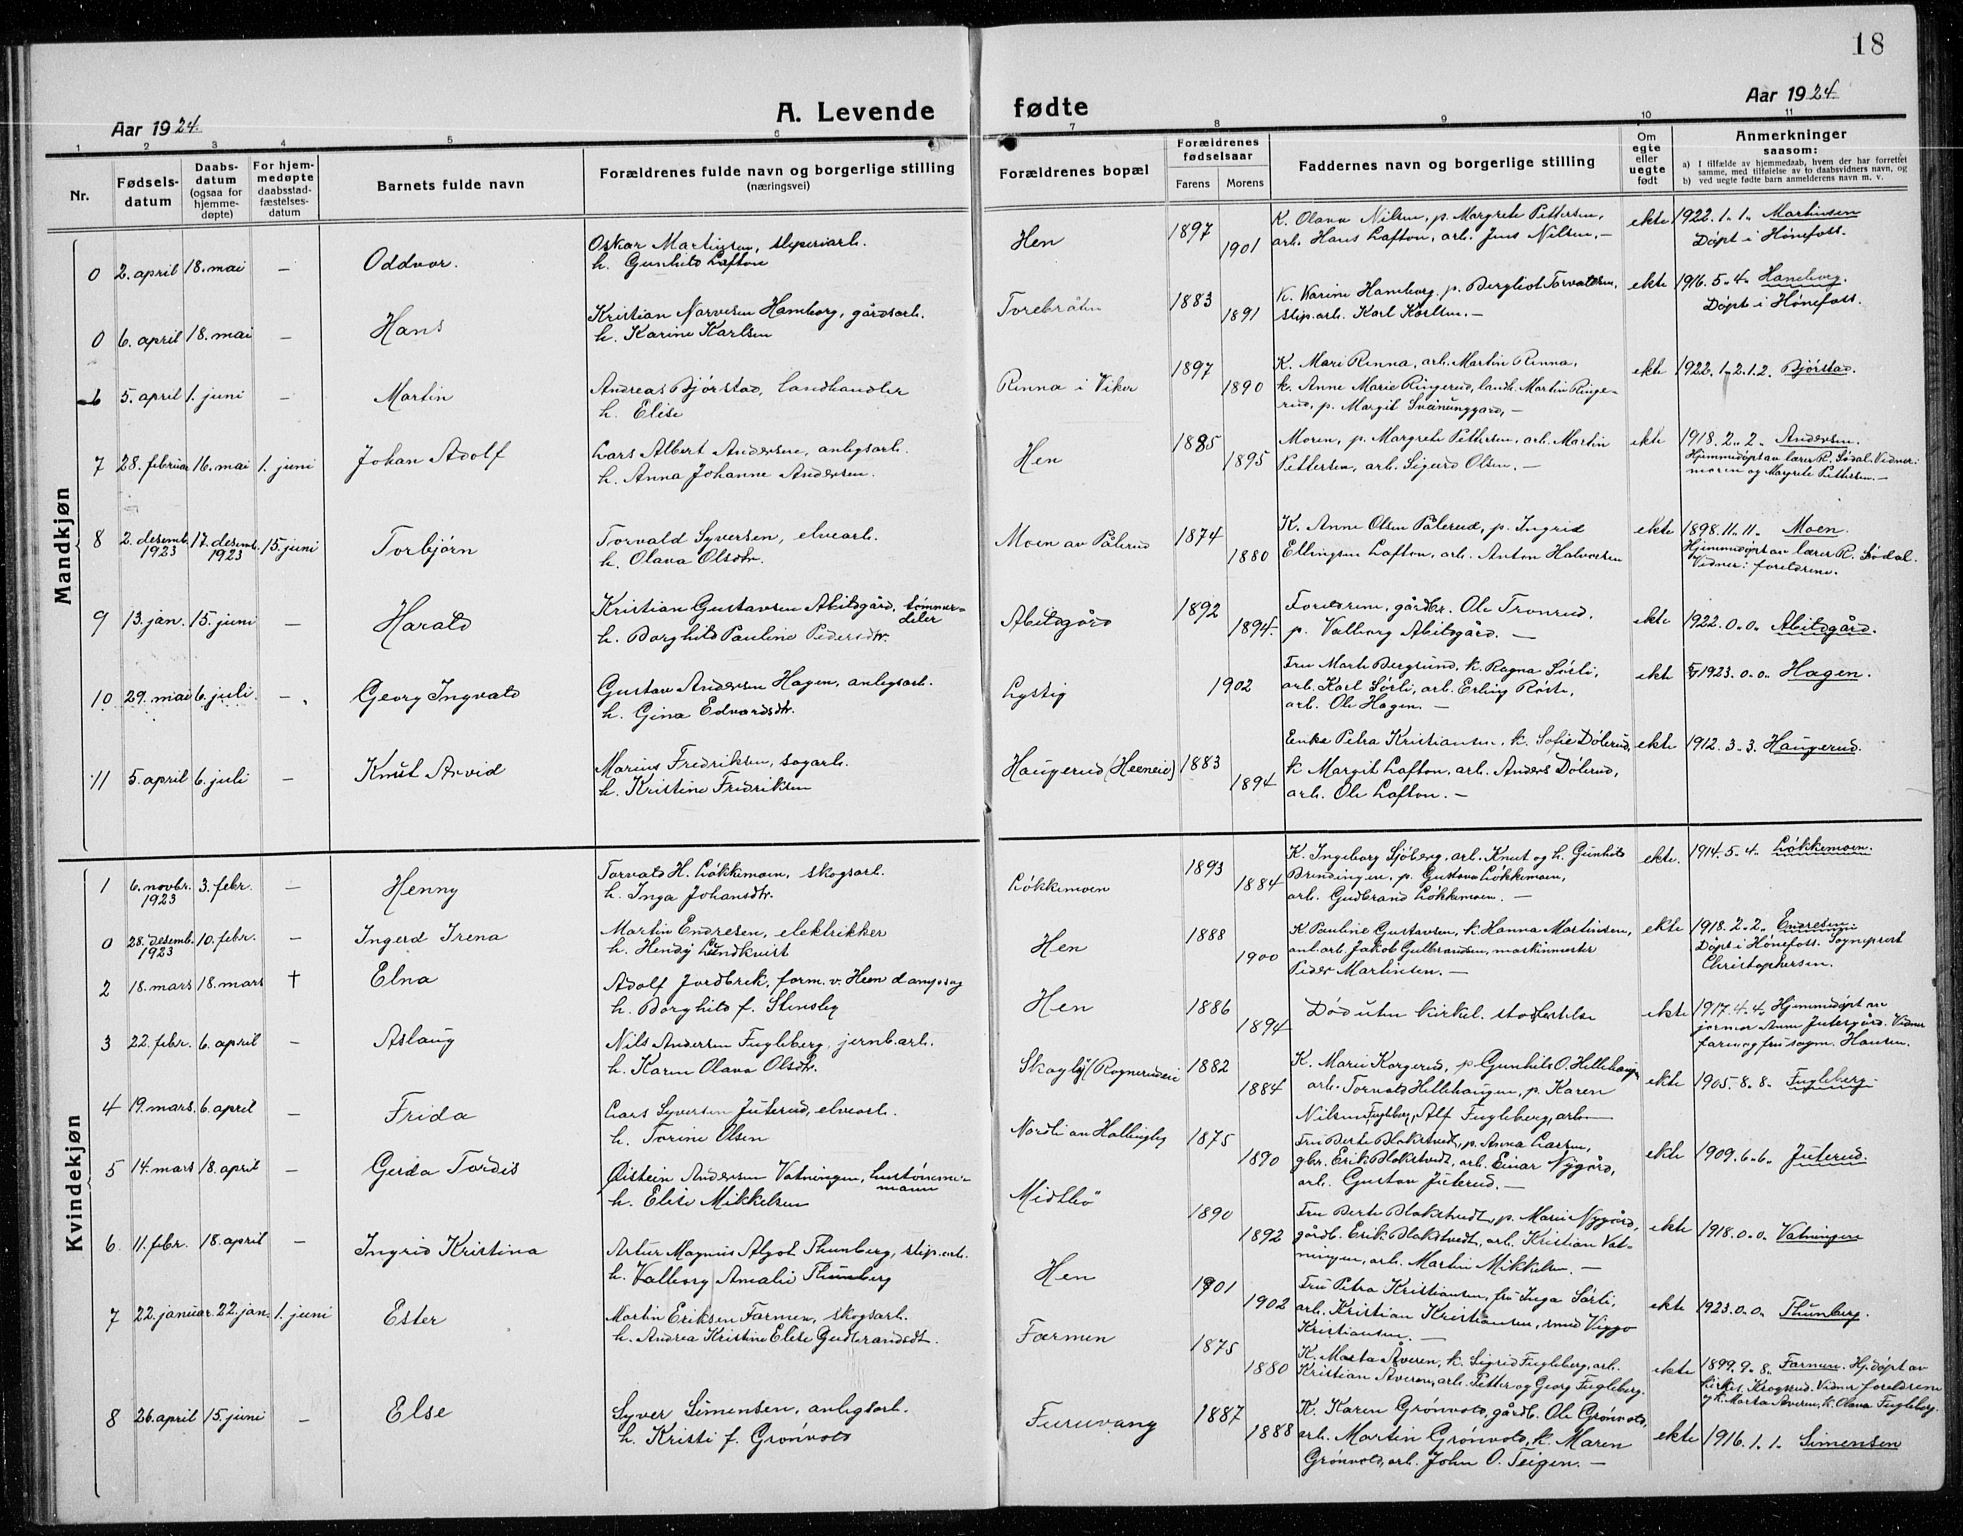 18
Aar 1924.
A. Levende
fødte
Aar 1924.
1 2 3 4 5 6 7 8 9 10 11
Nr.
Fødsels-
datum
Daabs-
datum
(ogsaa for
hjemme-
døpte)
For hjem-
medøpte
daabsstad-
fæstelses-
datum
Barnets fulde navn
Forældrenes fulde navn og borgerlige stilling
(næringsvei)
Forældrenes bopæl
Forældrenes
fødselsaar
Farens Morens
Faddernes navn og borgerlige stilling
Om
egte
eller
uegte
født
Anmerkninger
saasom:
a) I tilfælde av hjemmedaab, hvem der har forrettet
samme, med tilføielse av to daabsvidners navn, og
b) ved uegte fødte barn anmelderens navn m. v.
Mandkjøn
0 2. april 18. mai – Oddvar.
Oskar Martinsen, sliperiarb.
h. Gunhild Lafton
Hen 1897 1901
K. Olava Nilsen, p. Margrete Pettersen,
arb. Hans Lafton, arb. Jens Nilsen, –
ekte 1922. 1. 1. Martinsen
Döpt i Hönefoss.
0 6. april 18. mai – Hans
Kristian Narvesen Hamborg, gårdsarb.
h. Karine Karlsen
Torebråten 1883 1891
K. Karine Hamborg, p. Bergliot Torvaldsen,
slip.arb. Karl Karlsen. –
ekte 1916. 5. 4. Hamborg.
Döpt i Hönefoss.
6 5. april 1. juni – Martin
Andreas Bjørstad, landhandler
h. Elise
Rinna i Viker 1897 1890
K. Mari Rinna, arb. Martin Rinna,
k. Anne Marie Ringerud, landh. Martin Ringe-
rud, p. Margit Svånunggard, –
ekte 1922. 1. 2. 1. 2. Bjørstad.
7 28. februar 16. mai 1. juni Johan Adolf
Lars Albert Andersen, anlegsarb.
h. Anna Johanne Andersen.
Hen 1885 1895
Moren, p. Margrete Pettersen, arb. Martin
Pettersen, arb. Sigurd Olsen. –
ekte 1918. 2. 2. Andersen.
Hjemmedøpt av lærer R. Sødal. Vidner:
moren og Margrete Pettersen. –
8 2. desemb. 1923 17. desemb. 1923 15. juni Torbjørn
Torvald Syversen, elvearb.
h. Olava Olsdtr.
Moen av Pålerud 1874 1880
K. Anne Olsen Pålerud, p. Ingrid
Ellingsen Lafton, arb. Anton Halvorsen
ekte 1898. 11. 11. Moen.
Hjemmedøpt av lærer R. Sødal.
Vidner: foreldrene.
9 13. jan. 15. juni – Harald
Kristian Gustavsen Abildgård, tømmer-
deler
h. Borghild Pauline Pedersdtr.
Abildgård 1892 1894.
Foreldrene, gårdbr. Ole Tronrud,
p. Valborg Abildgård. –
ekte 1922. 0. 0. Abildgård.
10 29. mai 6. juli. – Georg Ingvald
Gustav Andersen Hagen, anlegsarb.
h. Gina Edvardsdtr.
Lystig 1902
Fru Marte Bergsund, k. Ragna Sørli,
arb. Karl Sørli, arb. Erling Røste,
arb. Ole Hagen. –
ekte 1923. 0. 0. Hagen.
11 5. april 6. juli – Knut Arvid
Marius Fredriksen, sagarb.
h. Kristine Fredriksen
Haugerud (Heeneie) 1883 1894
Enke Petra Kristiansen, k. Sofie Dölerud,
k. Margit Lafton, arb. Anders Dölerud,
arb. Ole Lafton. –
ekte 1912. 3. 3. Haugerud.
Kvindekjøn
1 6. novbr. 1923 3. febr. – Henny
Torvald H. Lökkemoen, skogsarb.
h. Inga Johansdtr.
Lökkemoen 1893 1884
K. Ingeborg Sjöberg, arb. Knut og h. Gunhild
Brendingen, p. Gustava Lökkemoen,
arb. Gudbrand Lökkemoen. –
ekte. 1914. 5. 4. Lökkemoen.
0 28. desemb. 1923 10. febr. – Ingerd Irena
Martin Endresen, elektrikker
h. Hendy Lundkvist
Hen 1888 1900
K. Pauline Gustavsen, k. Hanna Martinsen,
anl.arb. Jakob Gulbrandsen, maskinmester
Peder Martinsen. –
ekte 1918. 2. 2. Endresen.
Döpt i Hönefoss. Sogneprest
Christophersen.
2 18. mars 18. mars † Elna
Adolf Jordbrek, form. v. Heen dampsag
h. Borghild f. Stensby
Hen 1886 1894
Död uten kirkel. stadfestelse
ekte 1917. 4. 4, Hjemmedøpt av
jormor Anne Jutergård. Vidner
faren og fru sogm. Hansen.
3 22. febr. 6. april – Aslaug
Nils Andersen Fugleberg, jernb.arb.
h. Karen Olava Olsdtr.
Skogly (Rognerudeie 1882 1884
K. Marie Korgerud, p. Gunhild O. Hillehaugen
arb. Torvald Hillehaugen, p. Karen
Nilsen Fugleberg, Alf Fugleberg, arb.
ekte 1905. 8. 8. Fugleberg.
4 19. mars 6. april – Frida
Lars Syversen Juterud, elvearb.
h. Torine Olsen
Nordli av Hallingby 1875 1890
Fru Berte Blakstvedt, p. Anna Larsen,
gbr. Erik Blakstvedt, arb. Einar Nygård,
arb. Gustav Juterud. –
ekte 1909. 6. 6. Juterud.
5 14. mars 18. april – Gerda Tordis
Øistein Andersen Vatningen, hustömmer-
mann
h. Elise Mikkelsen
Midtbö 1890 1892
Fru Berte Blakstvedt, p. Marie Nygård,
gårdb. Erik Blakstvedt, arb. Kristian Vat-
ningen, arb. Martin Mikkelsen. –
ekte 1918. 0. 0. Vatningen
6 11. febr. 18. april – Ingrid Kristina
Artur Magnus Algot Thunberg, slip.arb.
h. Valborg Amalie Thunberg
Hen 1901 1902
Fru Petra Kristiansen, fru Inga Sørli,
arb. Kristian Kristiansen, smed Viggo
Kristiansen. –
ekte 1923. 0. 0. Thunberg.
7 22. januar. 22. jan. 1. juni Ester
Martin Eriksen Farmen, skogsarb.
h. Andrea Kristine Elise Gudbrandsdt.
Færmen 1875 1880
K. Marta Averen, k. Sigrid Fugleberg, arb.
Kristian Averen, arb. Petter og Georg Fugleberg.
ekte 1899. 9. 8. Farmen. Hj.døpt av
kirkes. Krogsrud. Vidner foreldrene
og k. Marta Averen, k. Olava Fugleberg.
8 26. april 15. juni – Else
Syver Simensen, anlegsarb.
h. Kristi f. Grønvold
Furuvang 1887 1888
K. Karen Grønvold, gårdb. Ole Grønvold,
arb. Morten Grønvold, k. Maren
Grønvold, arb. John O. Teigen. –
ekte 1916. 1. 1. Simensen